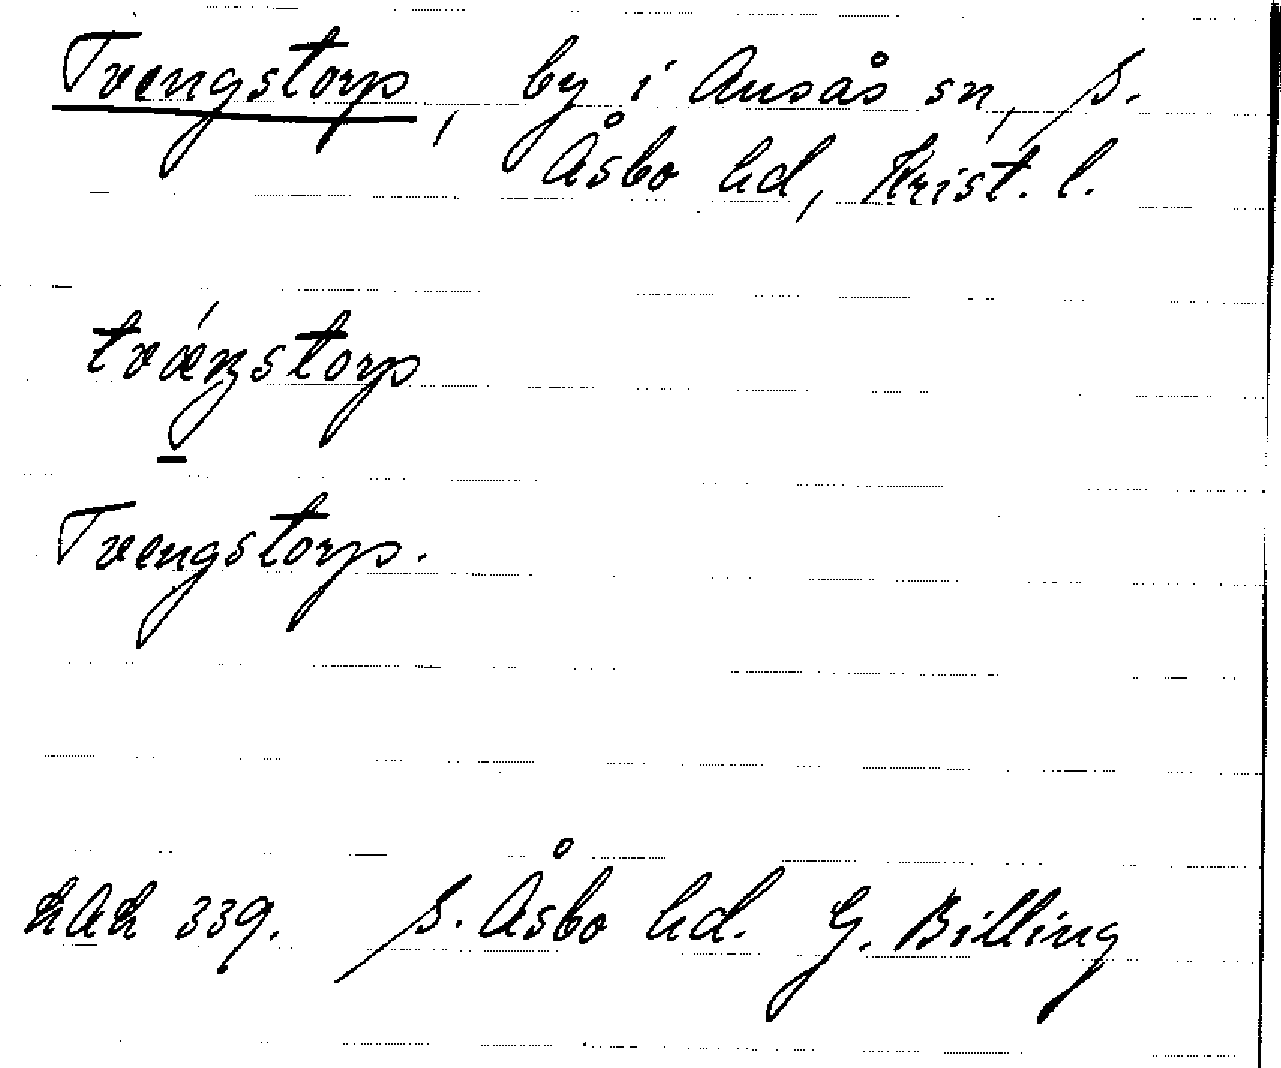 Tvengstorp, by i Ausås sn, S.
Åsbo hd, Krist. l.
tvæŋstorp
Tvengstorp.
LAL 339. S. Åsbo hd. G. Billing